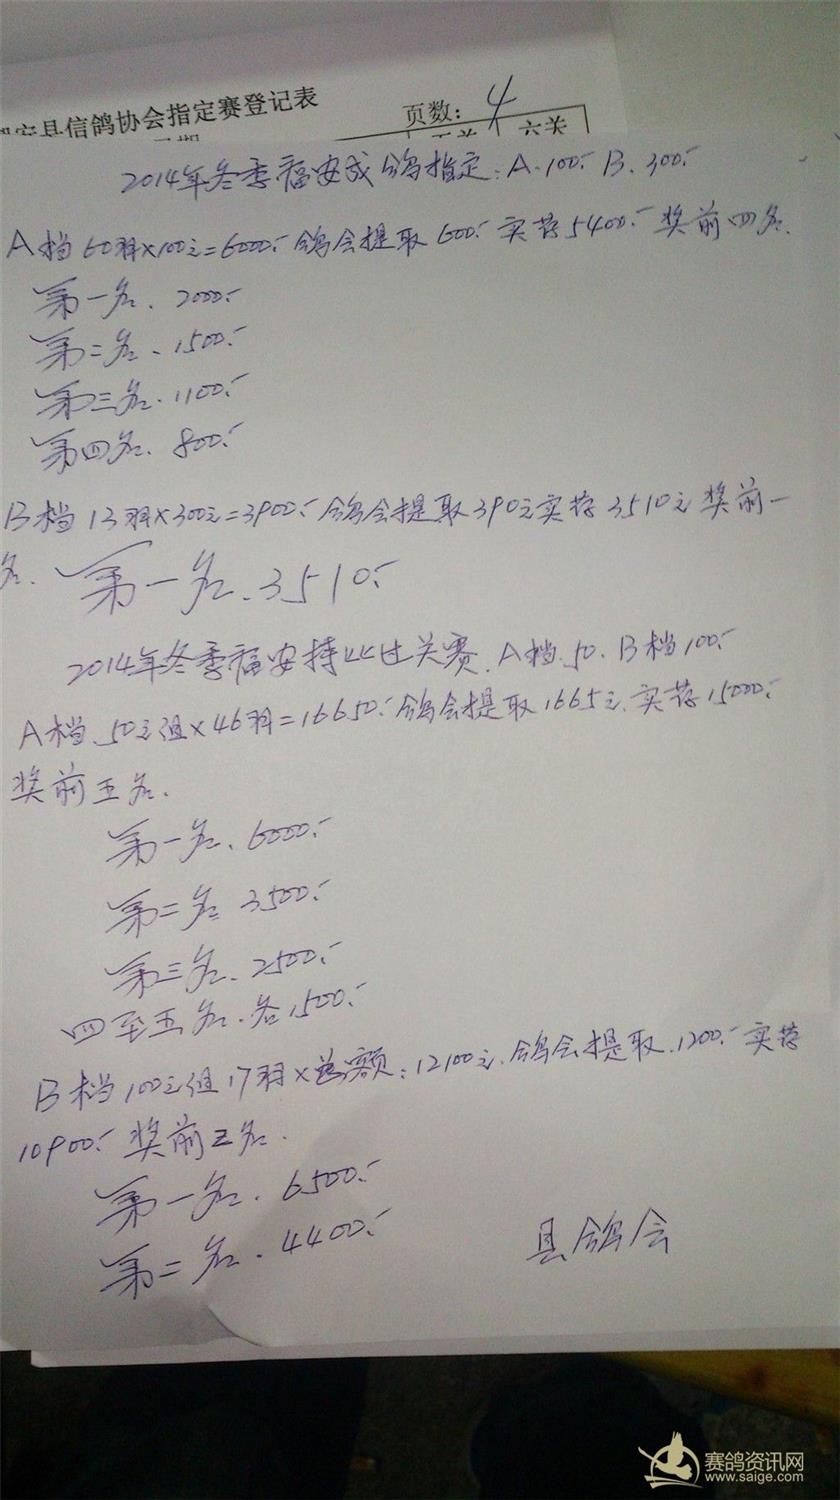 安县信鸽协会指定赛登记表
页数: 4
六关
2014年冬季福安成鸽指定: A.100.- B.300.-
A档60羽×100元=6000.- 鸽会提取600.- 实荐5400.- 奖前四名.
第一名. 2000.-
第二名. 1500.-
第三名. 1100.-
第四名. 800.-
B档13羽×300元=3900.- 鸽会提取390元实荐3510元奖前一
名. 第一名.3510.-
2014年冬季福安持比过关赛. A档.50. B档100.-
A档.50元组×46羽=16650.- 鸽会提取1665元.实荐15000.-
奖前五名.
第一名. 6000.-
第二名 3500.-
第三名. 2500.-
四至五名.各1500.-
B档100元组17羽×总额:12100元.鸽会提取.1200.- 实荐
10900.- 奖前二名.
第一名. 6500.-
第二名. 4400.-
县鸽会
赛鸽资讯网
www.saige.com